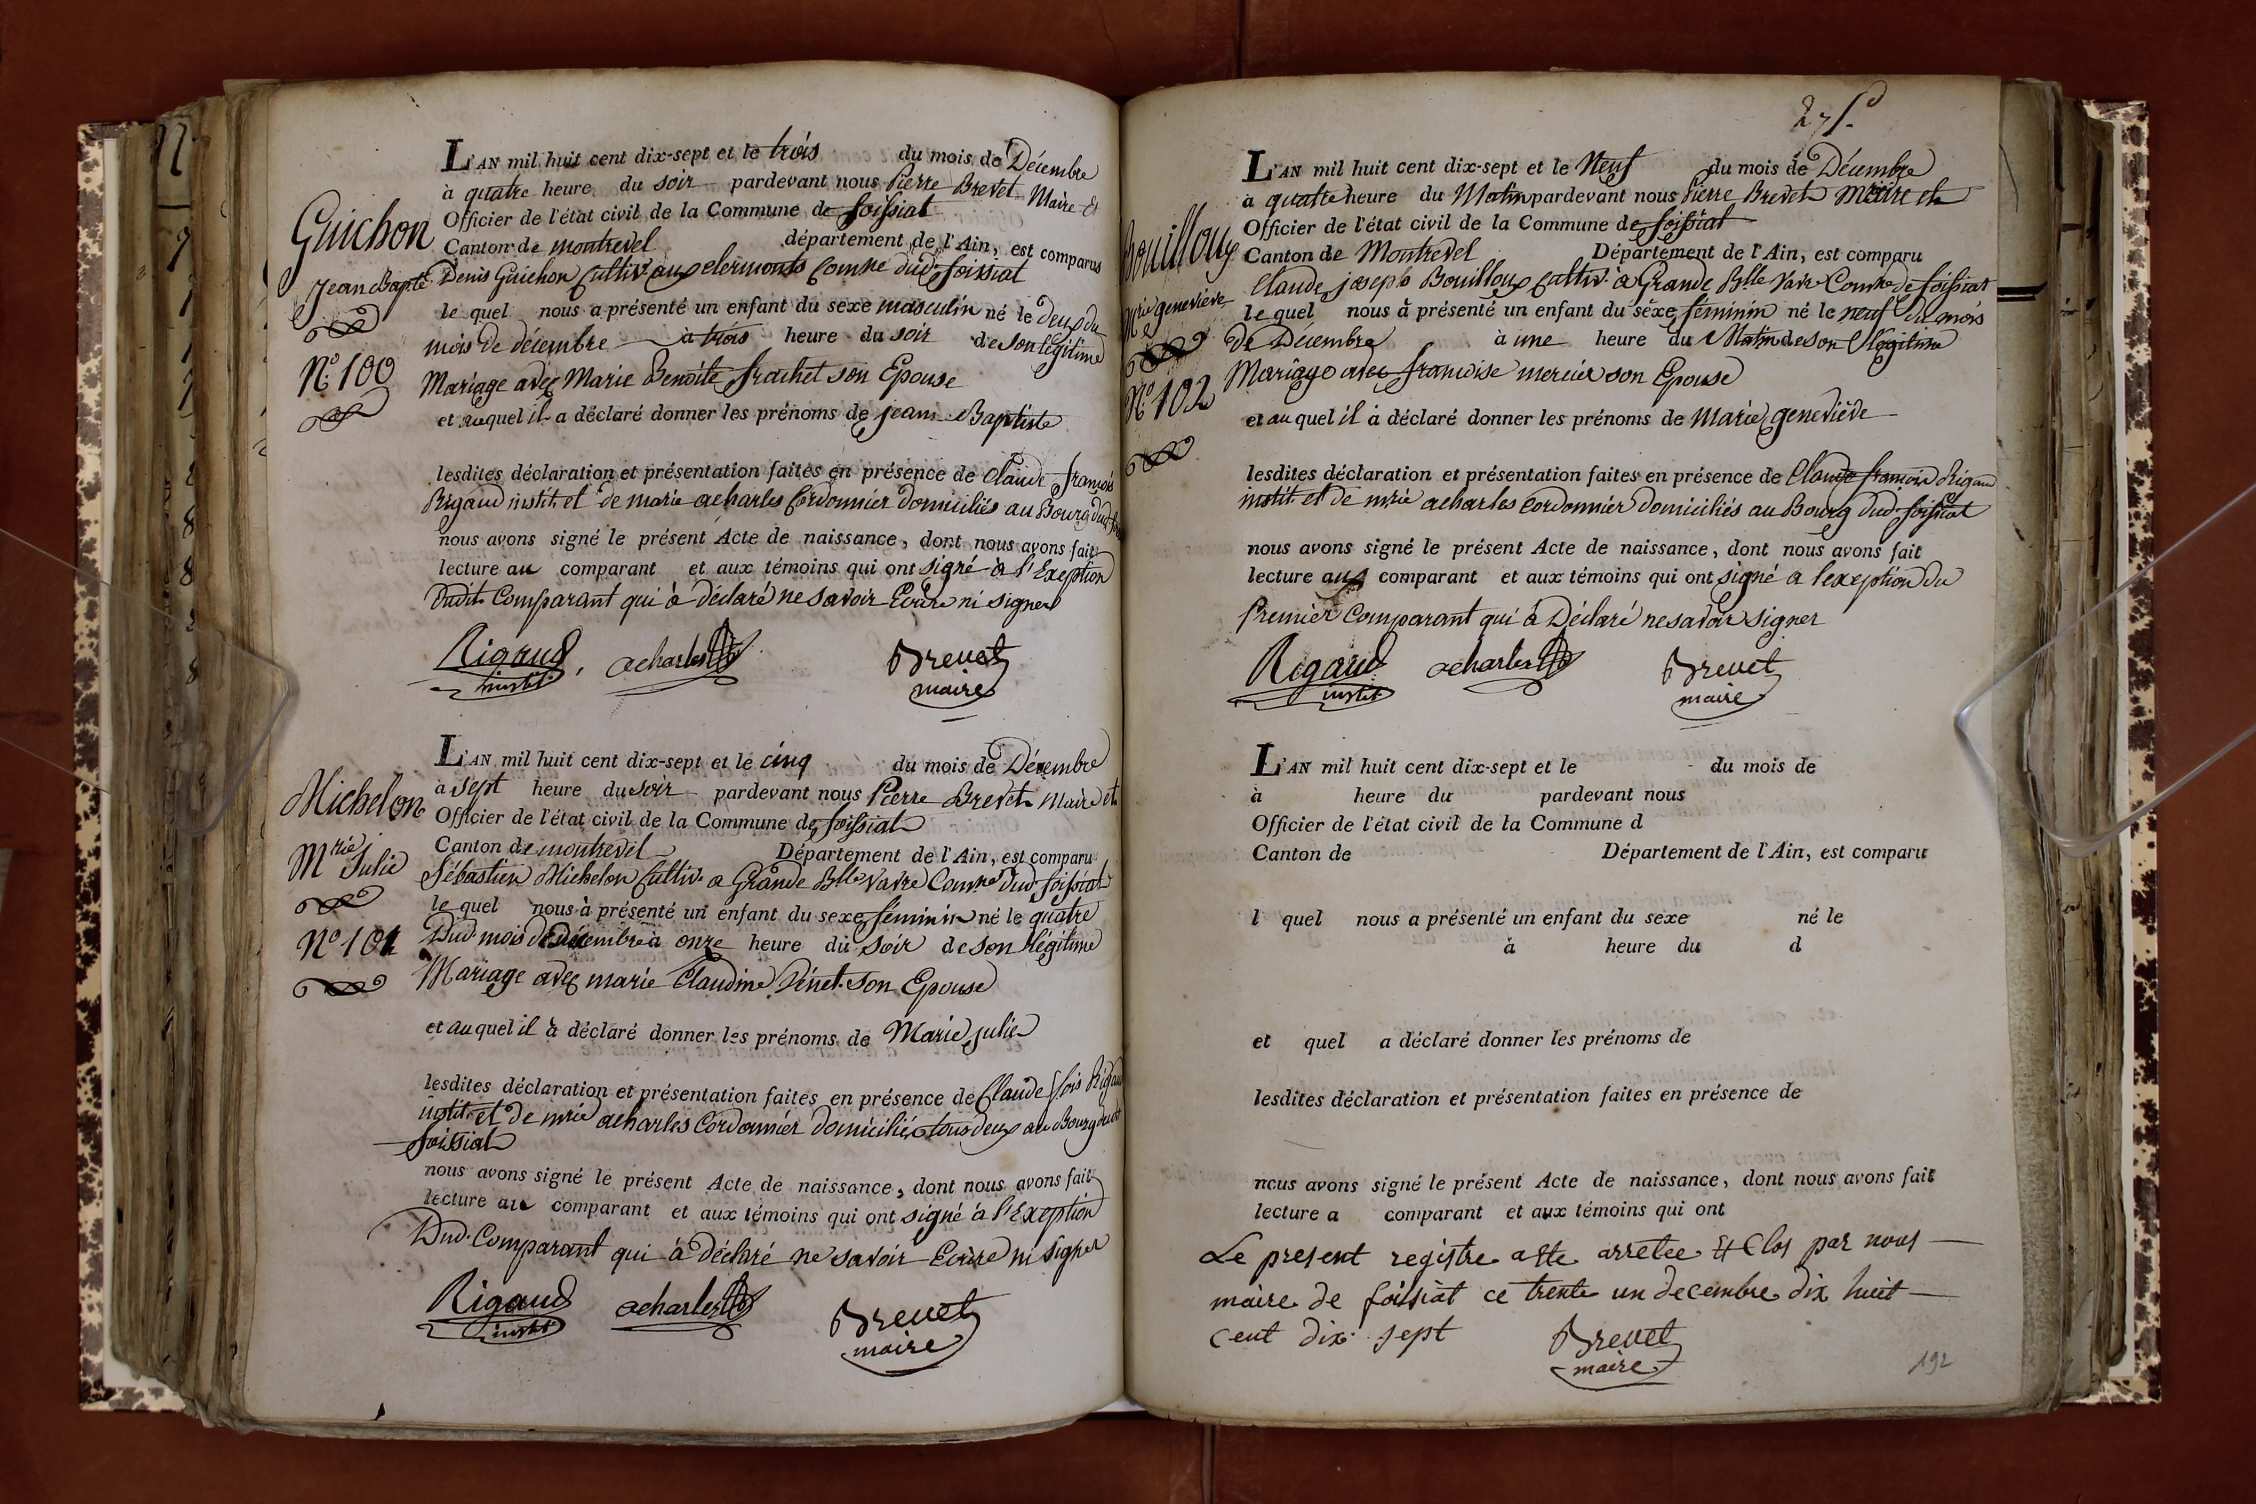 Guichon
Jean Bapte
No 100
L'AN mil huit cent dix-sept et le trois du mois de Décembre
à quatre heure du soir pardevant nous Pierre Brevet Maire et
Officier de l'état civil de la Commune de foissiat
Canton de montrevel département de l'Ain, est comparus
Denis Guichon Cultiv. aux clermonts Comne dud. foissiat
le quel nous a présenté un enfant du sexe masculin né le deux du
mois de décembre à trois heure du soir de son légitime
Mariage avec Marie Benoite frachet son Epouse
et auquel il a déclaré donner les prénoms de jean Baptiste
lesdites déclaration et présentation faites en présence de Claude françois
Rigaud instit. et de marie acharles Cordonnier domiciliés au Bourg dud.
nous avons signé le présent Acte de naissance, dont nous avons fait
lecture au comparant et aux témoins qui ont signé à l'Exeption
Dudit Comparant qui à déclaré ne savoir Ecrire ni signer
Rigaud instit. acharles Brevet
maire
Michelon
Mrie Julie
No 101
L'AN mil huit cent dix-sept et le cinq du mois de Décembre
à sept heure du soir pardevant nous Pierre Brevet Maire et
Officier de l'état civil de la Commune de foissiat
Canton de montrevel Département de l'Ain, est comparu
Sébastien Michelon Cultiv. a Grande Blle Vavre Comne dud. foissiat
le quel nous à présenté un enfant du sexe féminin né le quatre
Dud. mois de décembre à onze heure du soir de son légitime
Mariage avec marie Claudine Vinet son Epouse
et auquel il à déclaré donner les prénoms de Marie julie
lesdites déclaration et présentation faites en présence de Claude fois Rigaud
instit. et de mrie acharles Cordonnier domiciliés tous deux au Bourg dudit
foissiat
nous avons signé le présent Acte de naissance, dont nous avons fait
lecture au comparant et aux témoins qui ont signé à l'Exeption
Dud. Comparant qui à déclaré ne savoir Ecrire ni signer
Rigaud instit. acharles Brevet
maire
Bouilloux
Mrie geneviève
No 102
L'AN mil huit cent dix-sept et le Neuf du mois de Décembre
à quatre heure du Matin pardevant nous Pierre Brevet maire et
Officier de l'état civil de la Commune de foissiat
Canton de Montrevel Département de l'Ain, est comparu
Claude joseph Bouilloux Cultiv. à Grande Blle Vavre Comne de foissiat
le quel nous à présenté un enfant du sexe féminin né le neuf du mois
de Décembre à une heure du Matin de son légitime
Mariage avec françoise mercier son Epouse
et au quel il à déclaré donner les prénoms de Marie geneviève
lesdites déclaration et présentation faites en présence de Claude françois Rigaud
instit. et de mrie acharles Cordonnier domiciliés au Bourg dud. foissiat
nous avons signé le présent Acte de naissance, dont nous avons fait
lecture aux comparant et aux témoins qui ont signé a l'exeption du
premier Comparant qui à Déclaré ne savoir signer
Rigaud instit. acharles Brevet
maire
L'AN mil huit cent dix-sept et le du mois de
à heure du pardevant nous
Officier de l'état civil de la Commune d
Canton de Département de l'Ain, est comparu
l quel nous a présenté un enfant du sexe né le
à heure du d
et quel a déclaré donner les prénoms de
lesdites déclaration et présentation faites en présence de
nous avons signé le présent Acte de naissance, dont nous avons fait
lecture a comparant et aux témoins qui ont
Le present registre a ete arretee Et Clos par nous
maire de foissiat ce trente un decembre dix huit
cent dix sept Brevet
maire
192